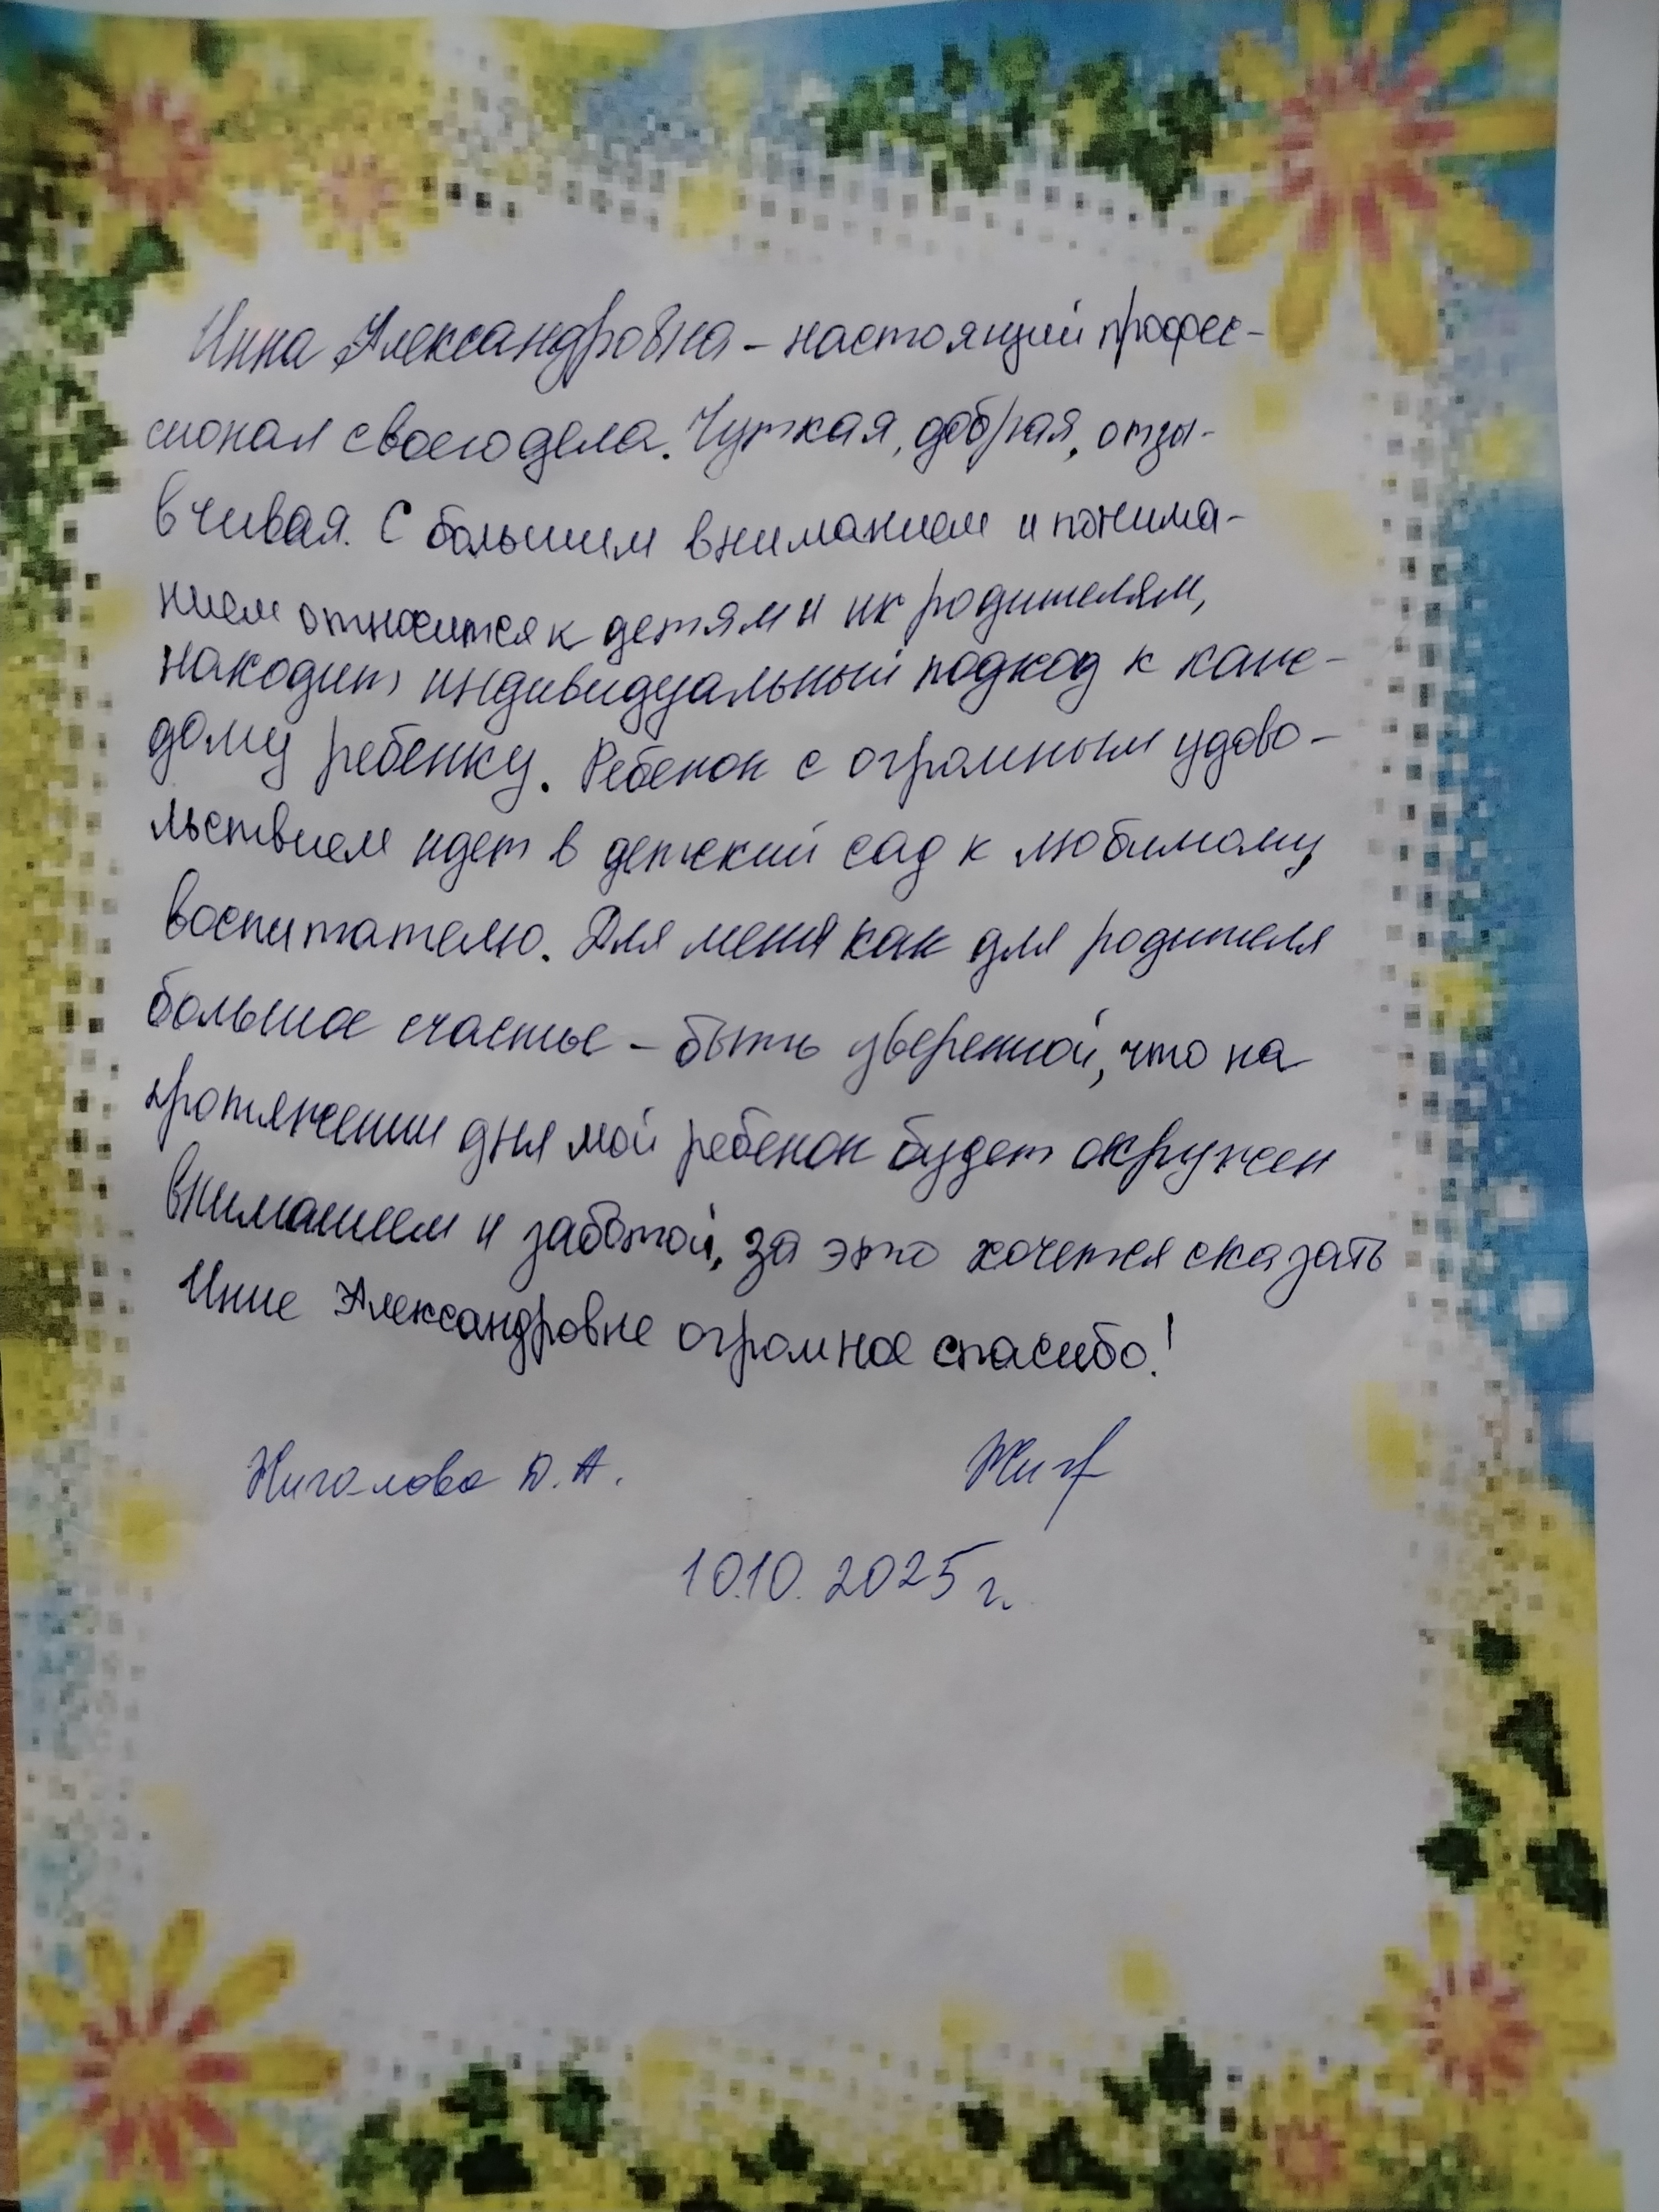 Инна Александровна – настоящий профес-
сионал своего дела. Чуткая, добрая, отзы-
вчивая. С большим вниманием и понима-
нием относится к детям и их родителям,
находит индивидуальный подход к каж-
дому ребенку. Ребенок с огромным удово-
льствием идет в детский сад к любимому
воспитателю. Для меня как для родителя
большое счастье – быть уверенной, что на
протяжении дня мой ребенок будет окружен
вниманием и заботой, за это хочется сказать
Инне Александровне огромное спасибо!
Д.А.
10.10.2025 г.